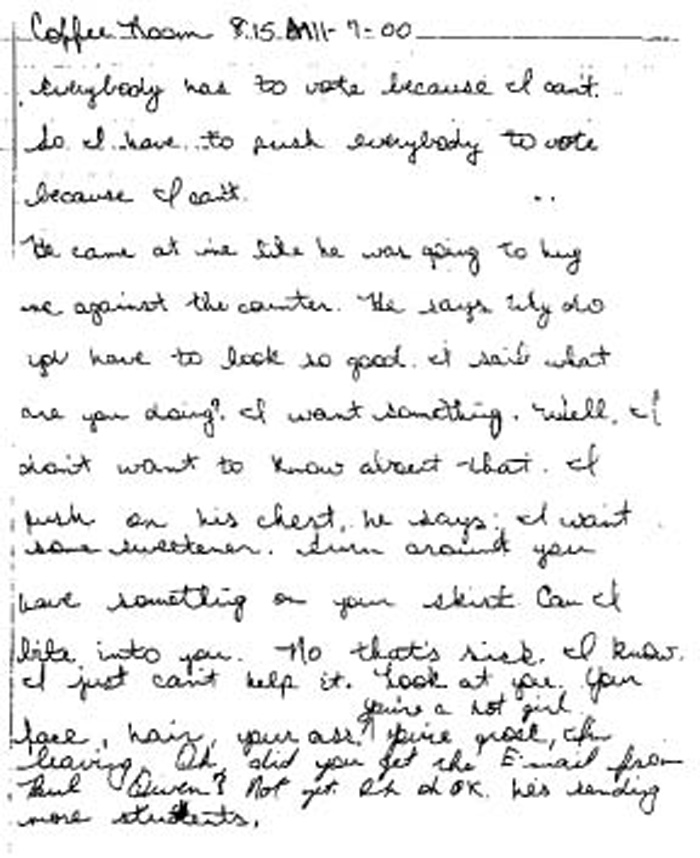 Coffee Room 8:15 AM 11-7-00
Everybody has to vote because I can't.
So I have to push everybody to vote
because I can't.
He came at me like he was going to hug
me against the counter. He says Why do
you have to look so good. I said what
are you doing? I want something. Well, I
don't want to know about that. I
push on his chest, he says: I want
some sweetener. Turn around you
have something on your skirt. Can I
bite into you. No that's sick. I know.
I just can't help it. Look at you. Your
you're a hot girl
face, hair, your ass. You're gross, I'm
leaving. Oh, did you get the E-mail from
Paul Owen? Not yet. Oh OK. he's sending
more students.